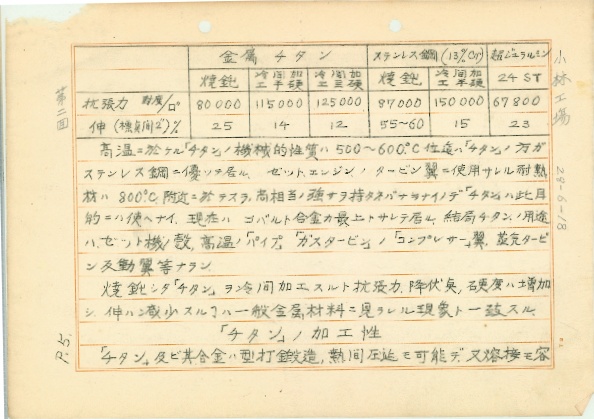 金属チタン ステンレス鋼(13%Cr) 超ジュラルミン
焼鈍 冷間加工半硬 冷間加工全硬 焼鈍 冷間加工硬 24ST
抗張力 封度/□" 80000 115000 125000 87000 150000 67800
伸(標点間2")% 25 14 12 55~60 15 23
高温ニ於ケル「チタン」ノ機械的性質ハ500~600°C位迄ハ「チタン」ノ方ガ
ステンレス鋼ニ優ッテ居ル、ゼットエンジンノタービン翼ニ使用サレル耐熱
材ハ800°C附近ニ於テスラ尚相当ノ強サヲ持タネバナラナイノデ「チタン」ハ此目
的ニハ使ヘナイ、現在ハコバルト合金ガ最上トサレテ居ル、結局チタンノ用途
ハ、ゼット機ノ殻、高温ノ「パイプ」「ガスタービン」ノ「コンプレサー」翼、蒸気タービ
ン反動翼等ナラン、
焼鈍シタ「チタン」ヲ冷間加工スルト抗張力、降伏点、硬度ハ増加
シ、伸ハ減少スル事ハ一般金属材料ニ見ラレル現象ト一致スル、
「チタン」ノ加工性
「チタン」及ビ其合金ハ型打鍛造、熱間圧延モ可能デ、又溶接モ容
第二回
P.5.
小林工場
29-6-18